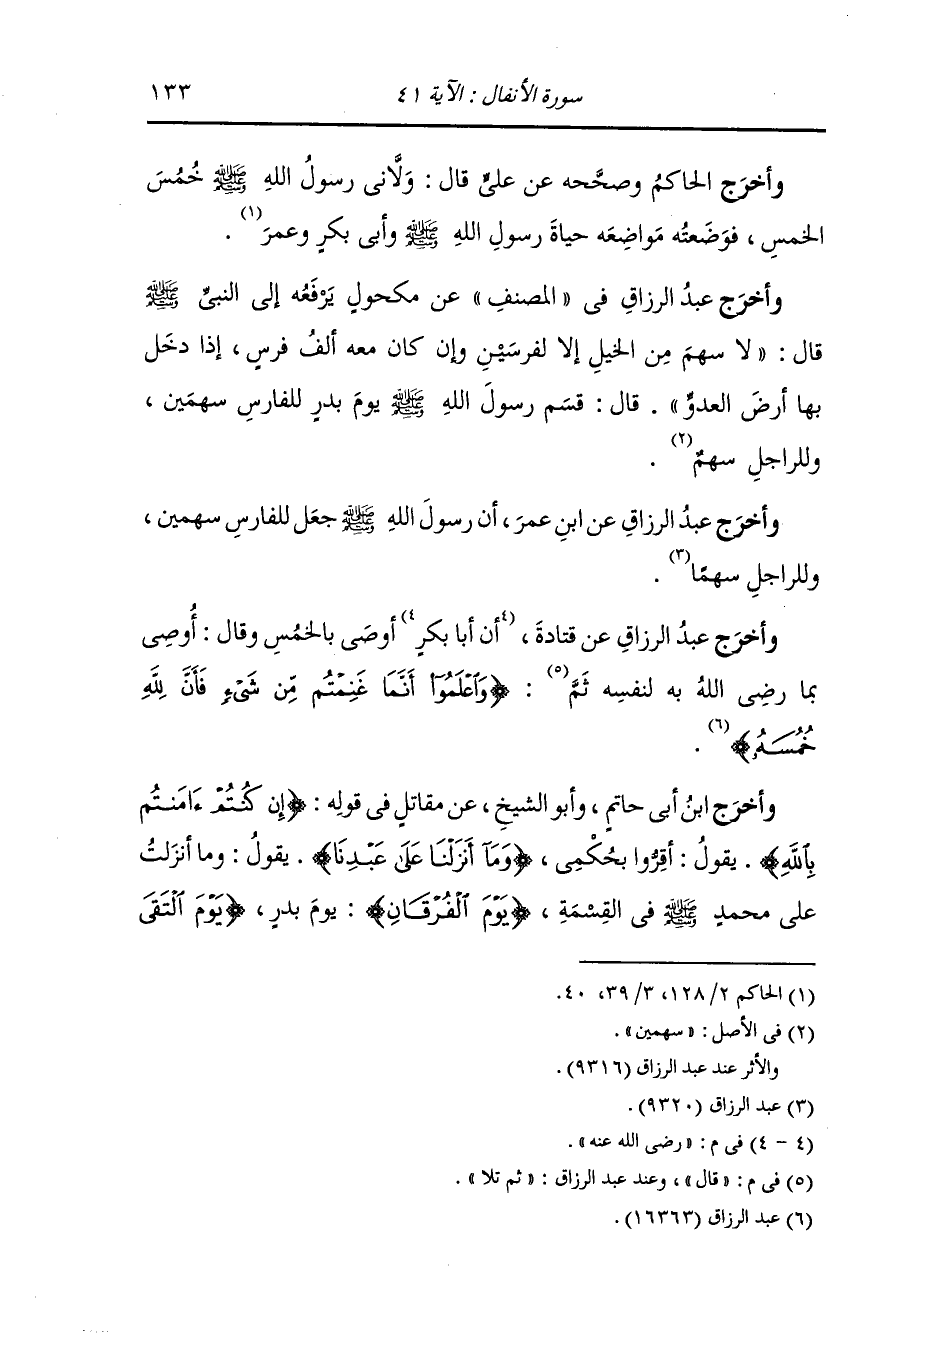 سورة الأنفال : الآية ٤١ ١٣٣
وأخرَج الحاكمُ وصحَّحه عن علىٍّ قال : وَلَّانى رسولُ اللهِ ﷺ خُمُسَ
الخمسِ ، فوَضَعتُه مَواضِعَه حياةَ رسولِ اللهِ ﷺ وأبى بكرٍ وعمرَ(١) .
وأخرَج عبدُ الرزاقِ فى « المصنفِ » عن مكحولٍ يَرْفَعُه إلى النبىِّ ﷺ
قال : « لا سهمَ مِن الخيلِ إلا لفرسَيْنِ وإن كان معه ألفُ فرسٍ ، إذا دخَل
بها أرضَ العدوِّ » . قال : قسَم رسولَ اللهِ ﷺ يومَ بدرٍ للفارسِ سهمَين ،
وللراجلِ سهمٌ(٢) .
وأخرَج عبدُ الرزاقِ عن ابنِ عمرَ ، أن رسولَ اللهِ ﷺ جعَل للفارسِ سهمين ،
وللراجلِ سهمًا(٣) .
وأخرَج عبدُ الرزاقِ عن قتادةَ ، (٤أن أبا بكرٍ٤) أوصَى بالخمُسِ وقال : أُوصِى
بما رضِى اللهُ به لنفسِه ثَمَّ(٥) : ﴿وَٱعْلَمُوٓا۟ أَنَّمَا غَنِمْتُم مِّن شَىْءٍ فَأَنَّ لِلَّهِ
خُمُسَهُۥ﴾(٦) .
وأخرَج ابنُ أبى حاتمٍ ، وأبو الشيخِ ، عن مقاتلٍ فى قولِه : ﴿إِن كُنتُمْ ءَامَنتُم
بِٱللَّهِ﴾ . يقولُ : أقِرُّوا بحُكْمِى ، ﴿وَمَآ أَنزَلْنَا عَلَىٰ عَبْدِنَا﴾ . يقولُ : وما أنزَلتُ
على محمدٍ ﷺ فى القِسْمَةِ ، ﴿يَوْمَ ٱلْفُرْقَانِ﴾ : يومَ بدرٍ ، ﴿يَوْمَ ٱلْتَقَى
(١) الحاكم ٢/ ١٢٨، ٣/ ٣٩، ٤٠.
(٢) فى الأصل : « سهمين » .
والأثر عند عبد الرزاق (٩٣١٦) .
(٣) عبد الرزاق (٩٣٢٠) .
(٤ - ٤) فى م : « رضى الله عنه » .
(٥) فى م : « قال » ، وعند عبد الرزاق : « ثم تلا » .
(٦) عبد الرزاق (١٦٣٦٣) .